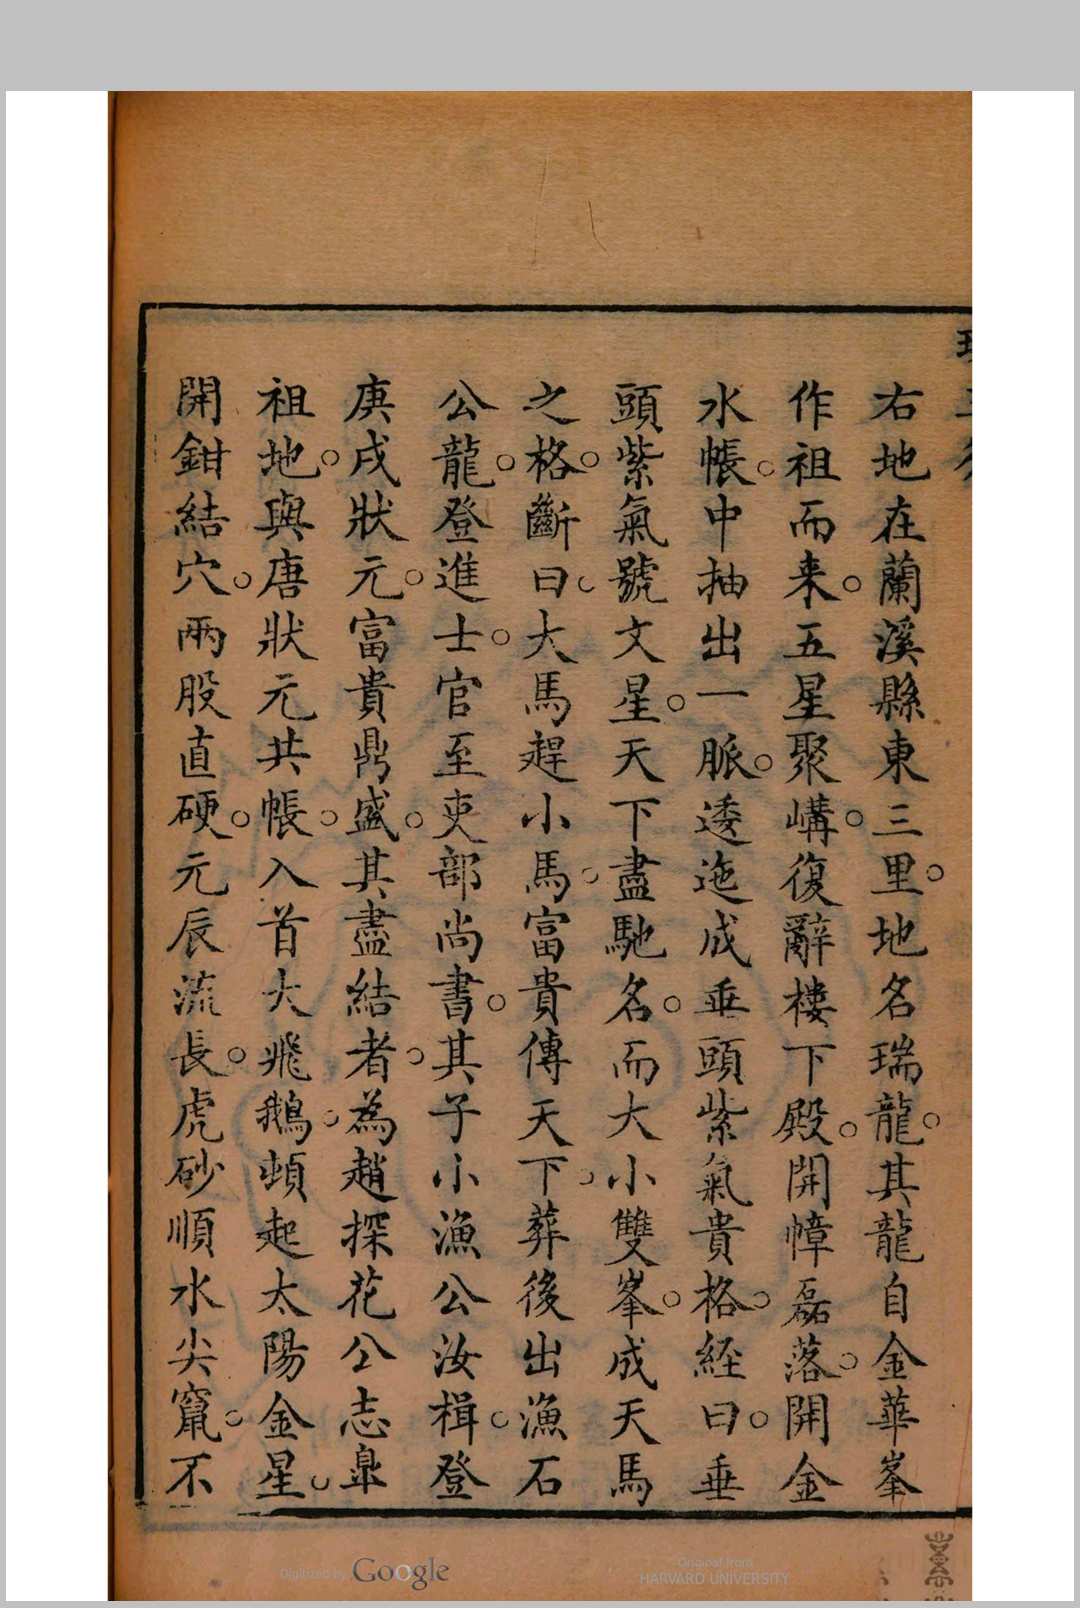 右地在蘭溪縣東三里○地名瑞龍○其龍自金華峯
作祖而来○五星聚嶹○復辭楼下殿○開幛磊落○開金
水帳○中抽出一脈○逶迤成垂頭紫氣貴格○経曰○垂
頭紫氣號文星○天下盡馳名○而大小雙峯○成天馬
之格○斷曰○大馬趕小馬○富貴傳天下○葬後出漁石
公龍○登進士○官至吏部尚書○其子小漁公汝楫○登
庚戌狀元○富貴鼎盛○其盡結者○為趙探花公志臯
祖地○與唐狀元共帳○入首大飛鵝○頓起太陽金星○
開鉗結穴○兩股直硬○元辰流長○虎砂順水尖竄○不
Digitized by Google
Original from
HARVARD UNIVERSITY